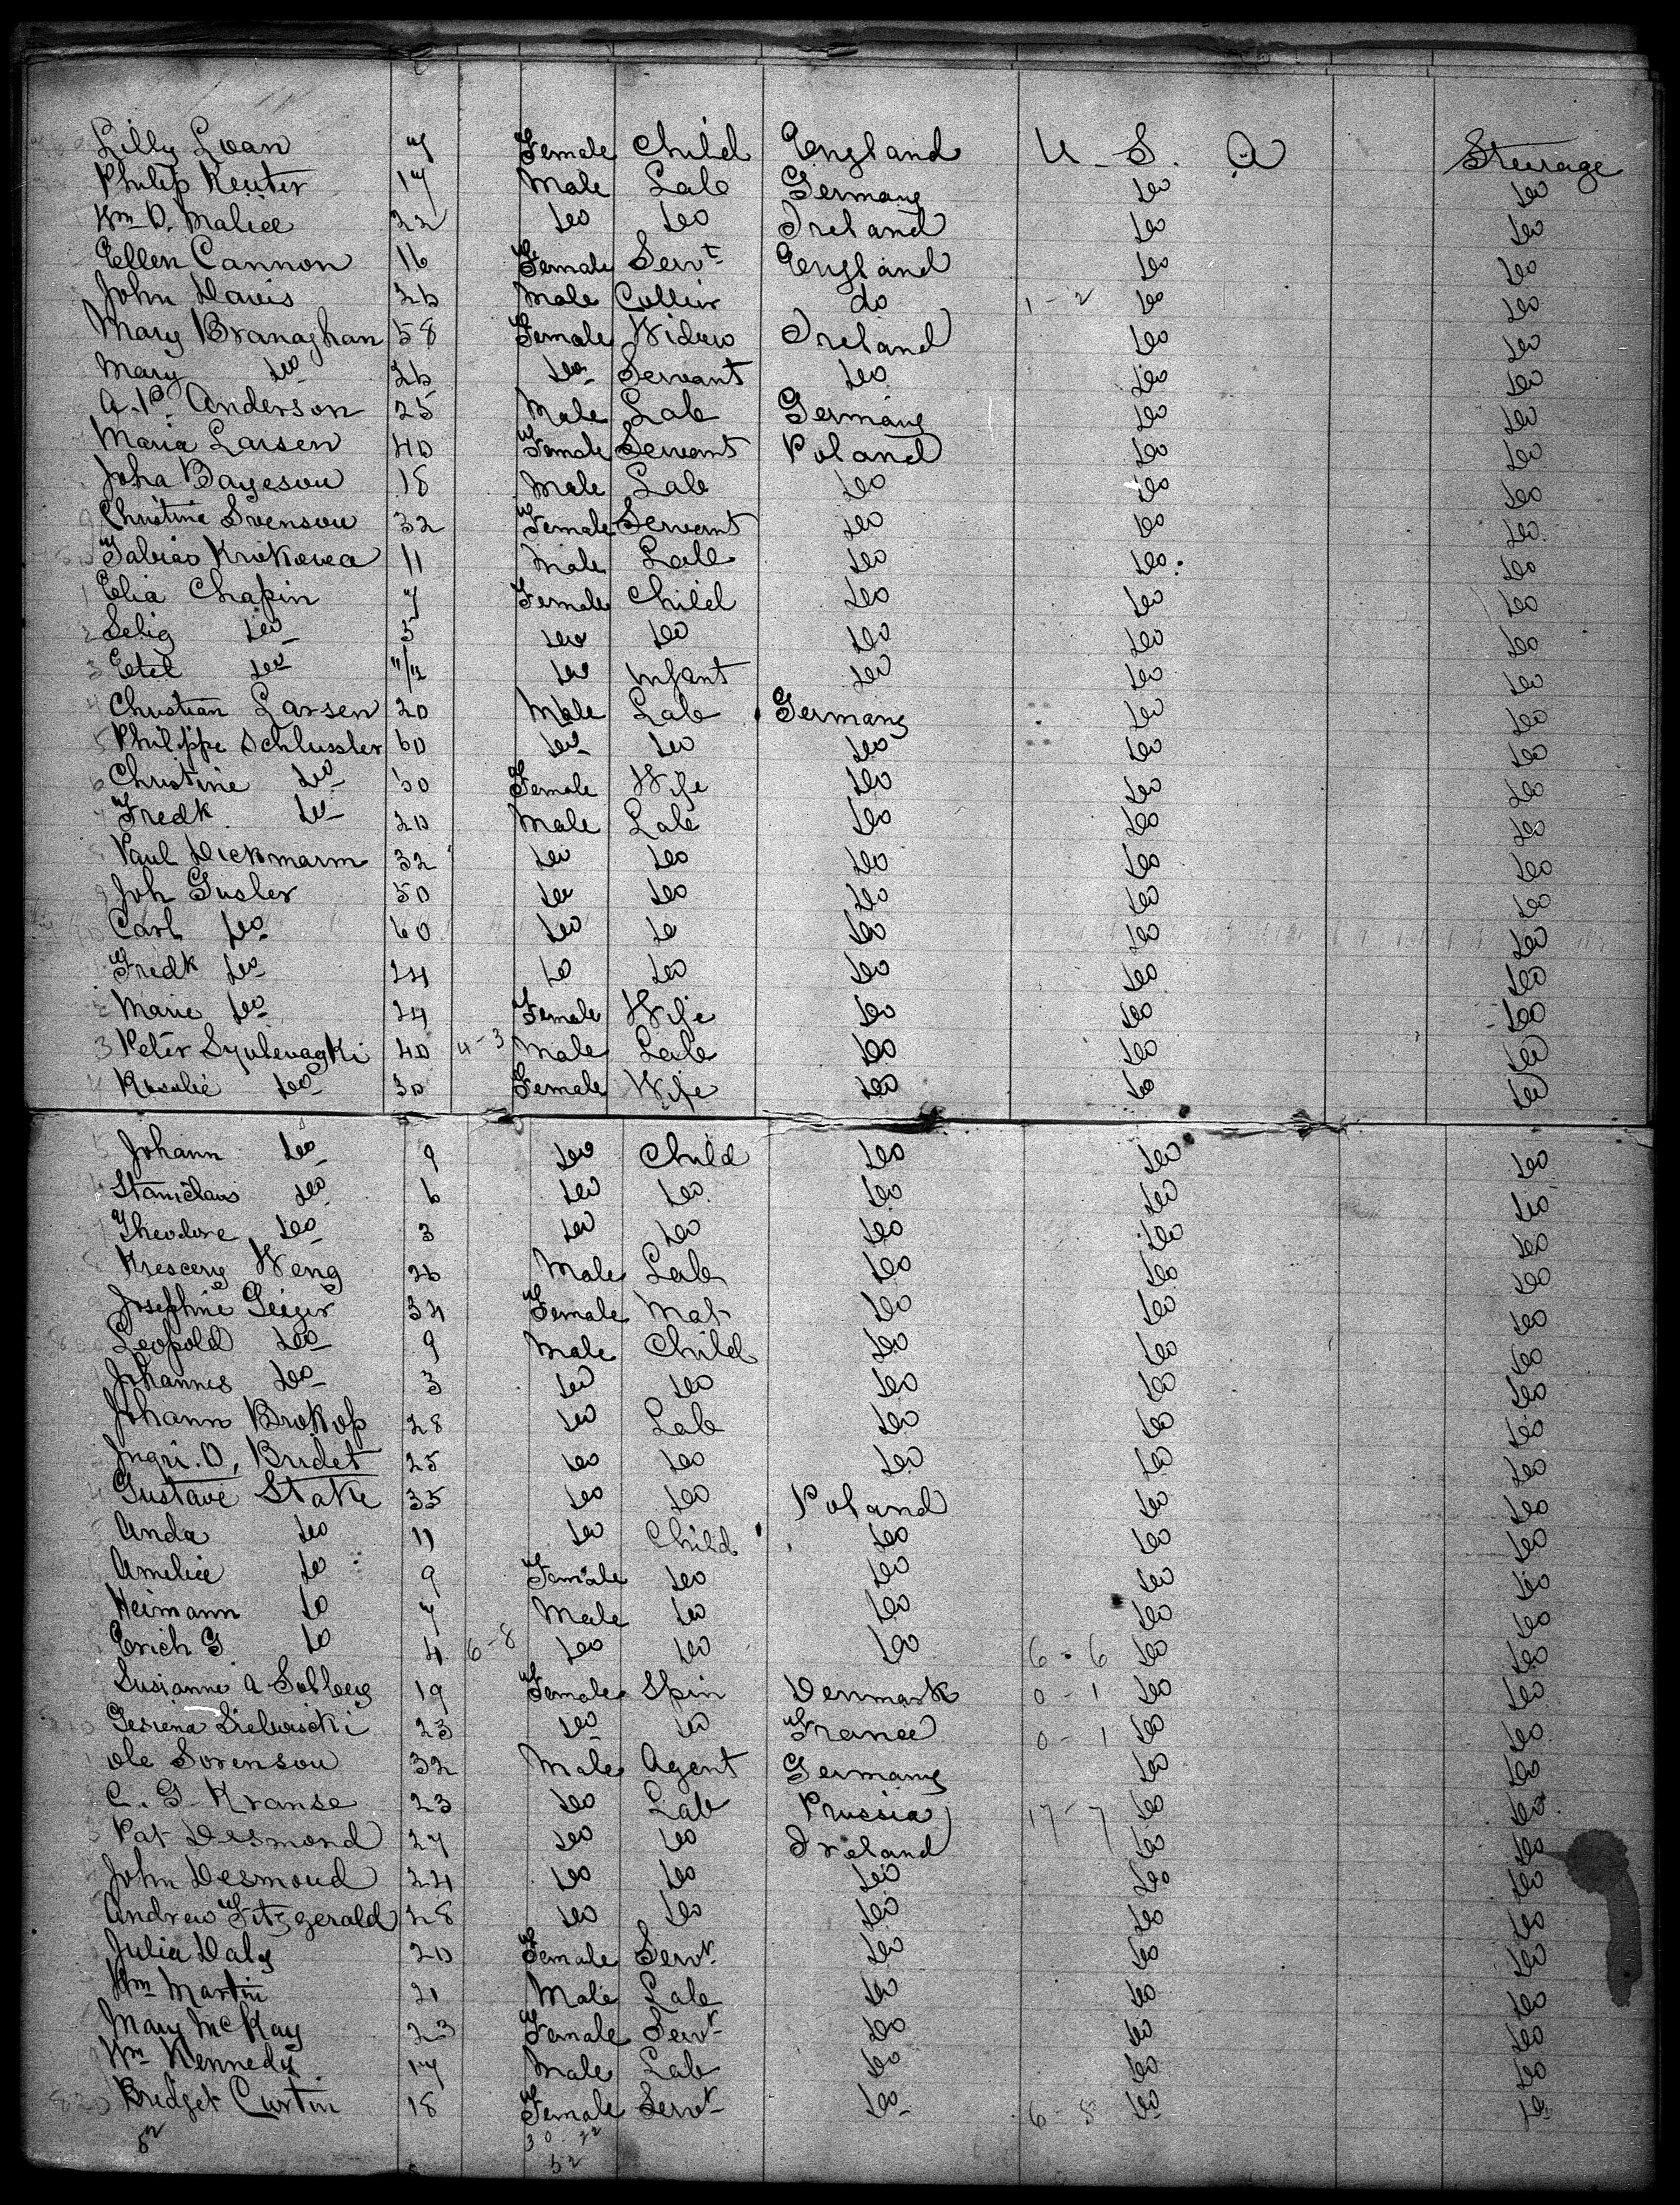 Lilly Loan 7 Female Child England U. S. A Steerage
Philip Reuter 17 Male Lab Germany do do
Wm D. Malice 22 do do Ireland do do
Ellen Cannon 16 Female Servt England do do
John Davis 26 Male Collier do 1-2 do do
Mary Branaghan 58 Female Widow Ireland do do
Mary do 26 do Servant do do do
A. P. Anderson 25 Male Lab Germany do do
Maria Larsen 40 Female Servant Poland do do
Joha Bayeson 18 Male Lab do do do
Christine Svenson 32 Female Servant do do do
Tabias 11 Male Lab do do do
1 Elia Chapin 7 Female Child do do do
2 Selig do 5 do do do do do
3 Etel do 11/12 do Infant do do do
4 Christian Larsen 20 Male Lab Germany do do
5 Philippe Schlussler 60 do do do do do
6 Christine do 50 Female Wife do do do
7 Fredk do 20 Male Lab do do do
Paul Dickmarm 32 do do do do do
9 Joh Gusler 50 do do do do do
Carl do 60 do do do do do
Fredk do 24 do do do do do
2 Marie do 24 Female Wife do do do
3 Peter 40 4-3 Male Lab do do do
4 Rosalie do 30 Female Wife do do do
5 Johann do 9 do Child do do do
Stanislaus do 6 do do do do do
Theodore do 3 do do do do do
Krescery Weng 26 Male Lab do do do
Josephine Geiger 34 Female Mat do do do
Leopold do 9 Male Child do do do
Johannes do 3 do do do do do
Johann Brokop 28 do Lab do do do
Ingri. O, Bridet 25 do do do do do
Gustave Stake 35 do do Poland do do
Anda do 11 do Child do do do
Amelie do 9 Female do do do do
Heimann do 7 Male do do do do
Erich G do 4 6-8 do do do 6-6 do do
Susianne A Solberg 19 Female Spin Denmark 0-1 do do
23 do do France 0-1 do do
Ole Sorenson 32 Male Agent Germany do do
C. G Kranse 23 do Lab Prussia 17-7 do do
Pat Desmond 27 do do Ireland do do
John Desmond 24 do do do do do
Andrew Fitzgerald 28 do do do do do
Julia Daly 20 Female Servt do do do
Wm Martin 21 Male Lab do do do
Mary McKay 23 Female Servt do do do
Wm Kennedy 17 Male Lab do do do
820 Bridget Curtin 18 Female Servt do 6-8 do do
52 30-22
52